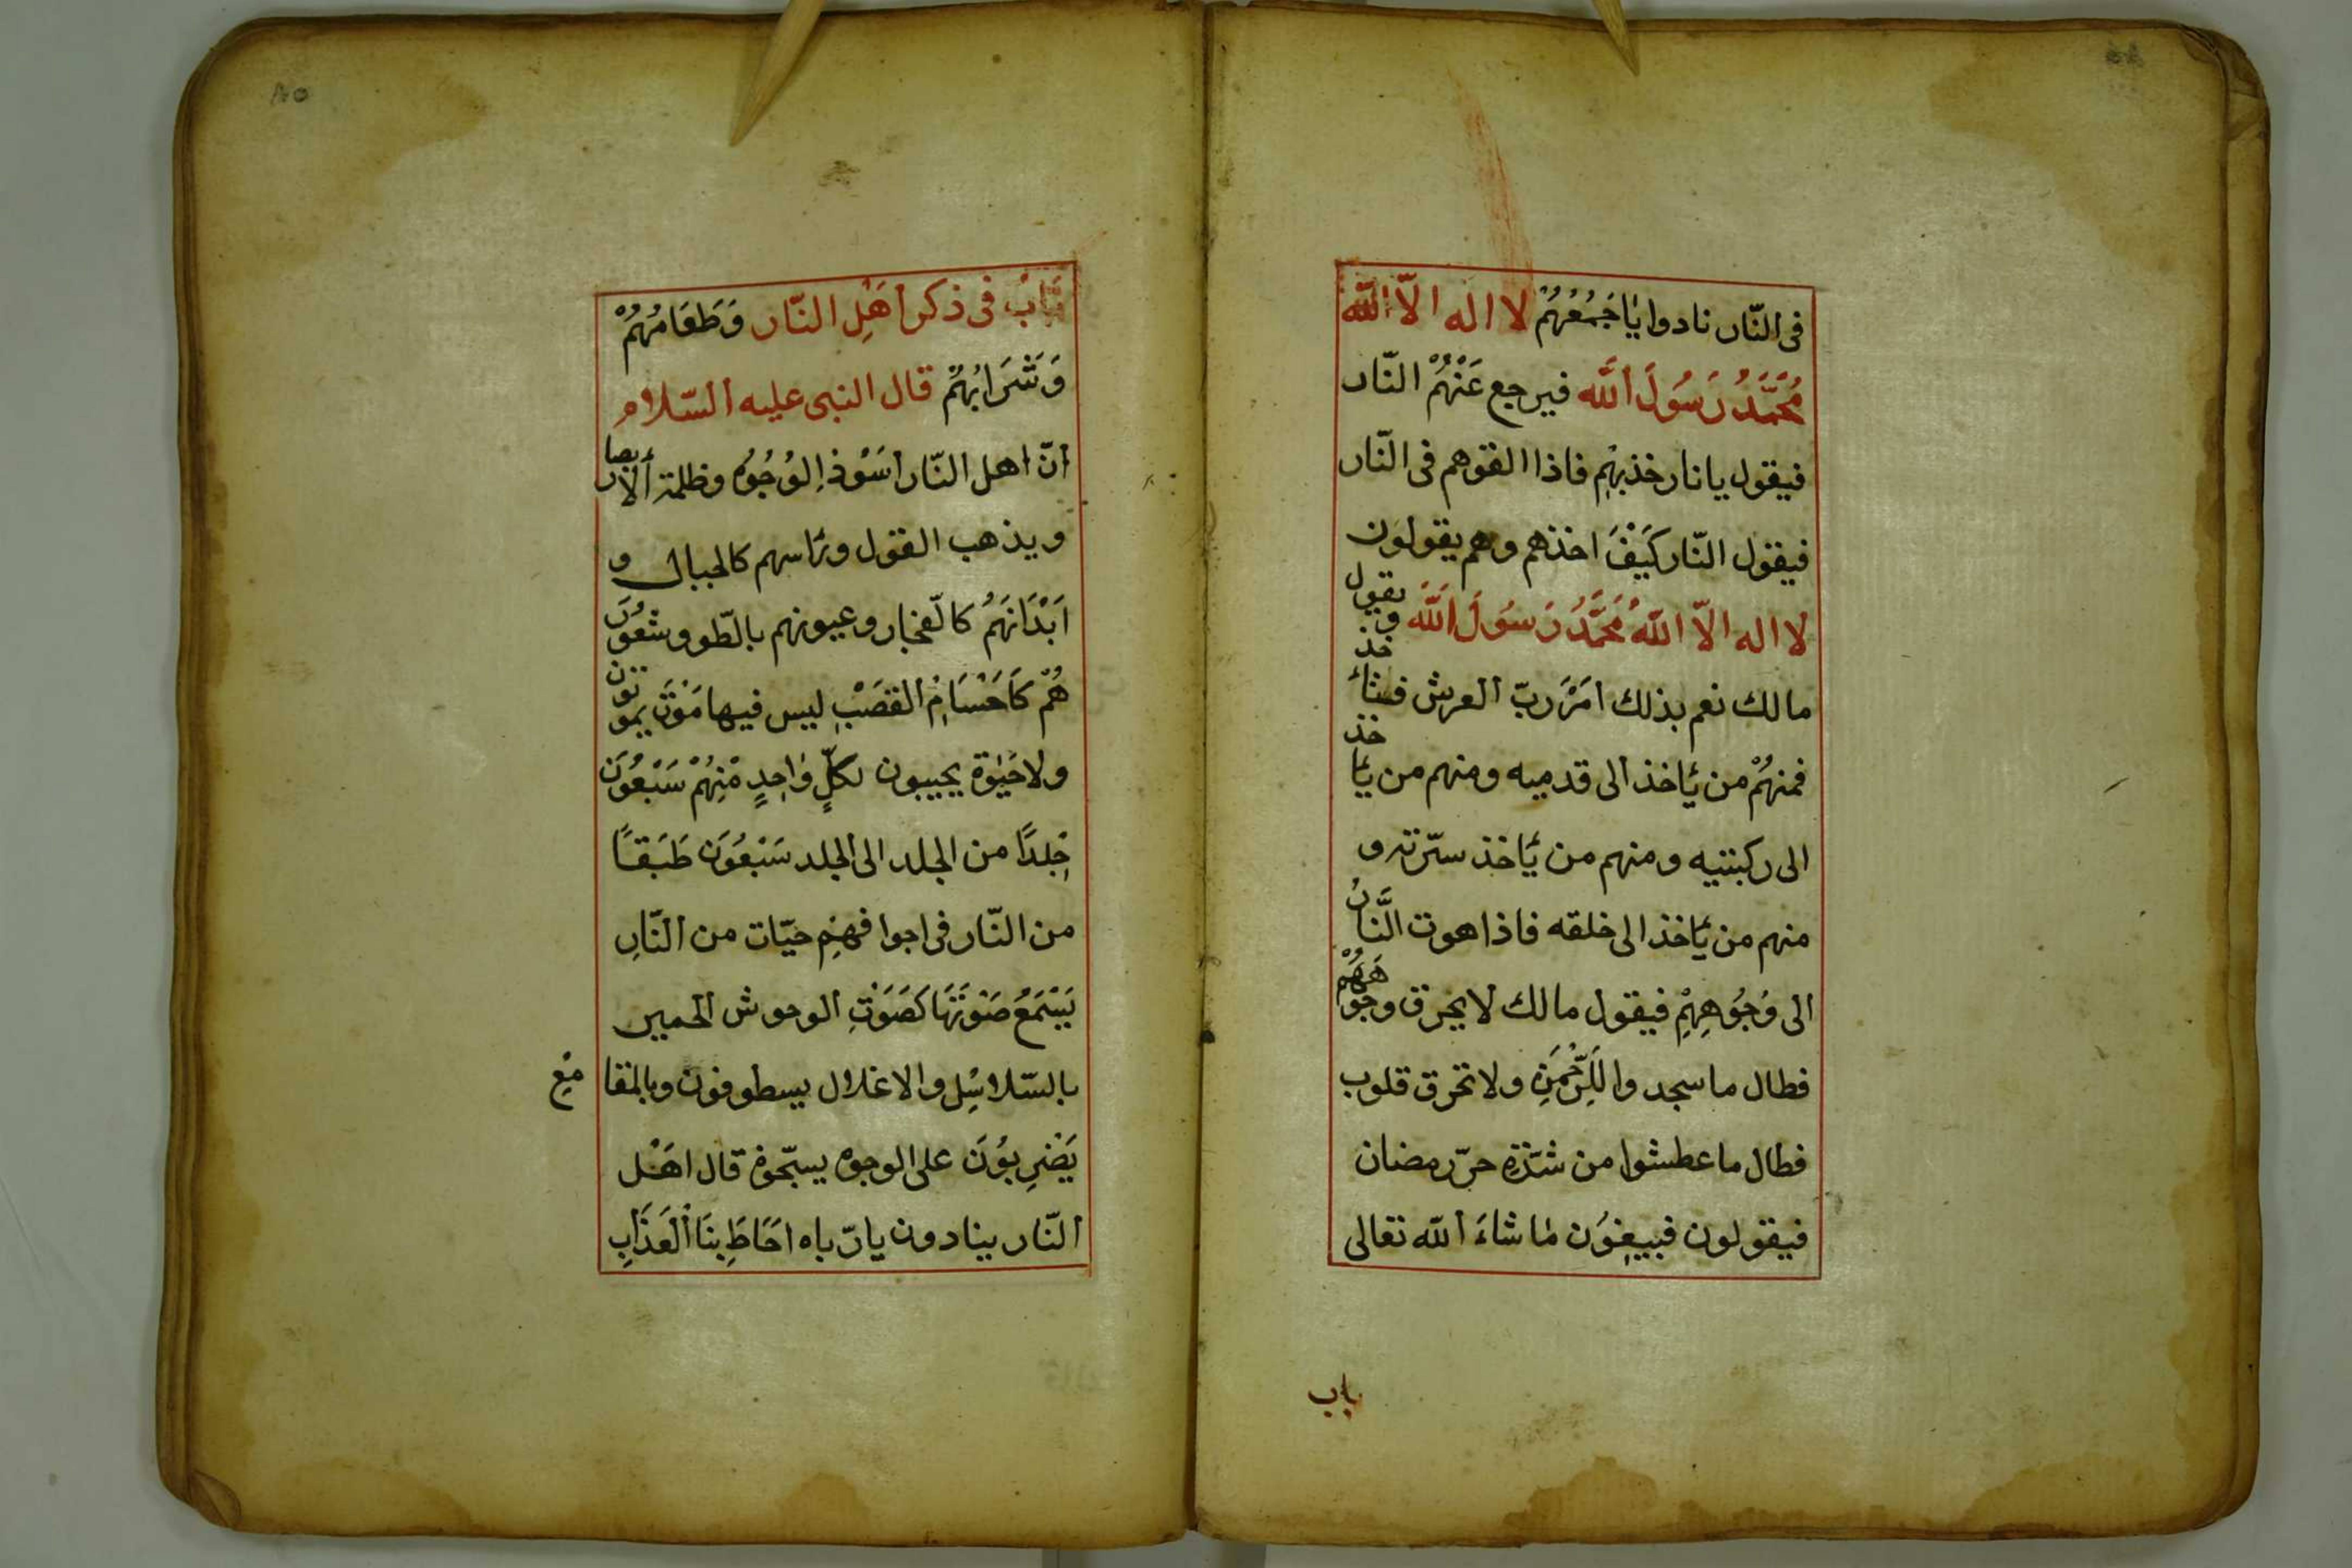 فى النّار نادوا يٰاجَمُعُهُمْ لا اله الّا الله
مُحَمَّدُ رَسُولَ اللّه فيرجع عَنْهُمْ النّار
فيقول يا نار خذبهِم فاذا القوهم فى النّار
فيقول النّار كَيَفَ اخذهم وهم يقولون
لا اله الّا اللّهُ مُحَمَّدُ رَسُولَ اللّه ويقول
مالك نعم بذلك امَرَ ربّ العرش فيأخذ
فمنهُمْ من ئاخذ الى قدميه ومنهم من ئاخذ
الى ركبتيه ومنهم من ئاخذ سرّته و
منهم من ئاخذ الى خلقه فاذا هوت النَّارُ
الى وُجُوهِهِمْ فيقول مالك لا يحرق وجُوهَهُمْ
فطال ما سجدوا لِلرَّحْمَنِ ولا تحرق قلوب
فطال ما عطشوا من شدّةِ حرّ رمضان
فيقولون فيبيعون مٰا شاءَ اللّه تعالى
باب
٨٥
بَابُ فى ذكر اَهْلِ النّار وَطَعَامُهُمْ
وَشَرَابُهُمْ قال النبى عليه السّلام
انّ اهل النّار اسَوْد الوُجُوُه وظلمة الابصار
ويذهب العقول ورٔاسهم كالجبال و
اَبْدَانَهُمُ كالفخار وعيونهم بالطّود وشعُورَ
هُمْ كَاَحسَامِ القصَبْ ليس فيها مَوْتَ يموتون
ولا حَيٰوة يحييون لكلّ وٰاحِدٍ مْنِهُمْ سَبْعُوَن
جِلدًا من الجلد الى الجلد سَبْعُوَن طَبَقًا
من النّار فى اجوافهِم حيّات من النّارِ
يَسْتَمَعُ صَوْتَهَا كَصَوَتِ الوحوش الحمير
بالسّلاسِل والاغلال يسطوفون وبالمقامِع
يَضْرِبُوَن على الوجوه يسبّحوْن قال اهْل
النّار ينادون يا رّباه اَحَاطَ بِنَا العَذَابِ